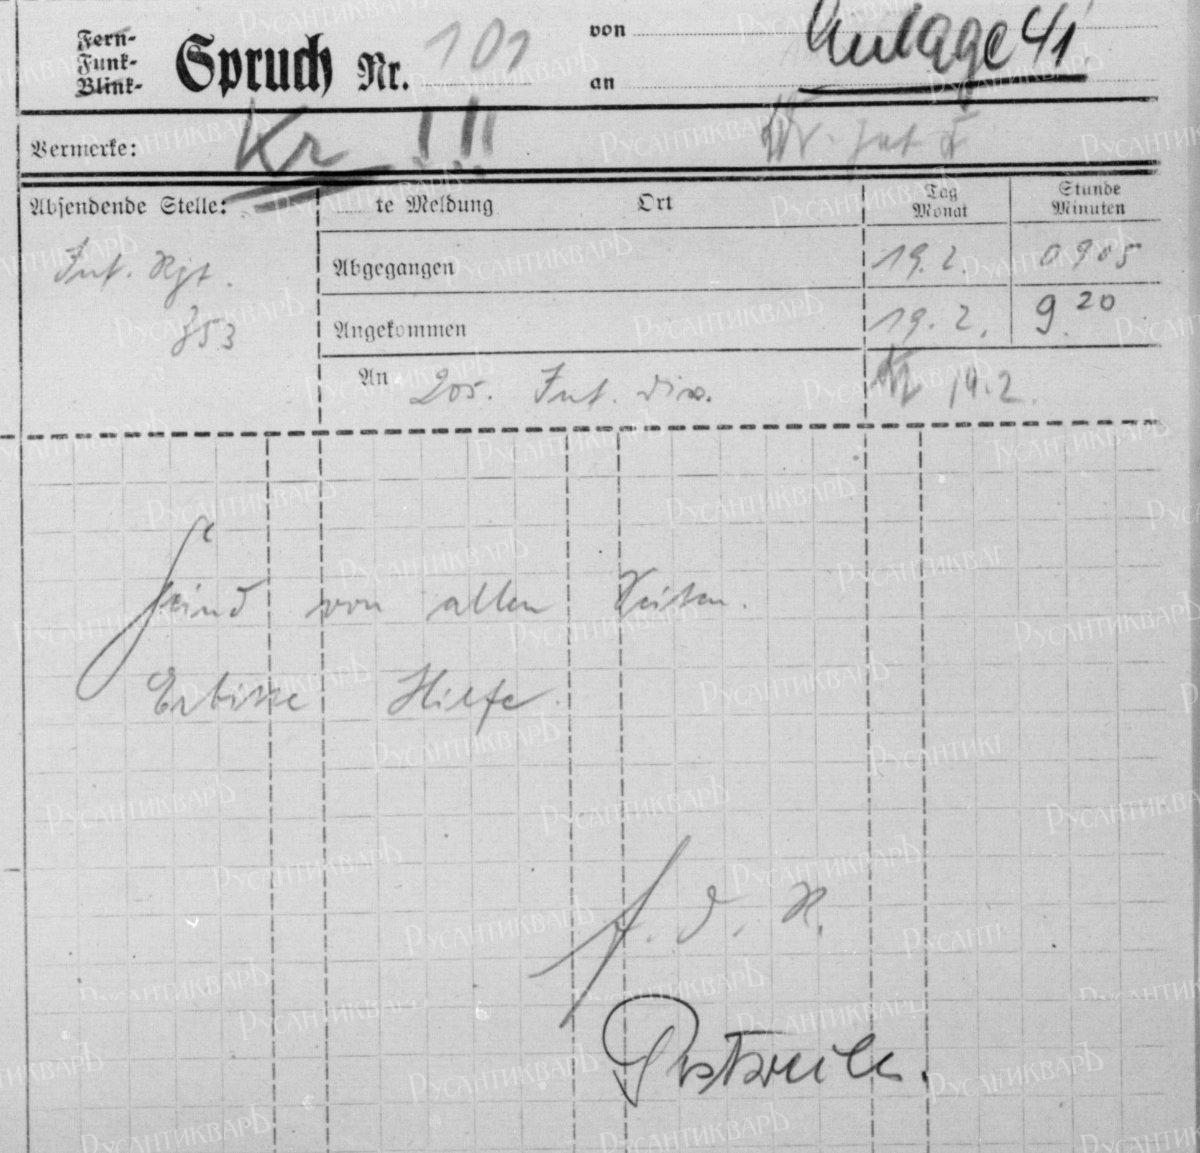 Fern-
Funk-
Blink-
Spruch Nr. 101
von
an
Anlage 41
Vermerke: Kr !!!
Absendende Stelle:
te Meldung
Ort
Tag
Monat
Stunde
Minuten
Inf. Rgt.
353
Abgegangen 19.2. 0905
Angekommen 19.2. 9.20
An 205. Inf. Div. 19.2.
Feind von allen Seiten.
Erbitte Hilfe.
f. d. R.